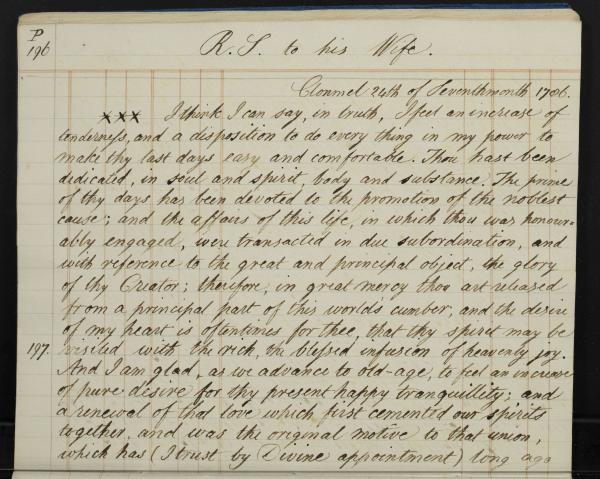 P
196
R. S. to his Wife.
Clonmel 24th of Seventhmonth 1786.
xxx I think I can say, in truth, I feel an increase of
tenderness, and a disposition to do every thing in my power to
make thy last days easy and comfortable. Thou hast been
dedicated, in soul and spirit, body and substance. The prime
of thy days has been devoted to the promotion of the noblest
cause; and the affairs of this life, in which thou was honour=
ably engaged, were transacted in due subordination, and
with reference to the great and principal object, the glory
of thy Creator; therefore, in great mercy thou art released
from a principal part of this world's cumber, and the desire
of my heart is oftentimes for thee, that thy spirit may be
197. visited with the rich, the blessed infusion of heavenly joy.
And I am glad, as we advance to old-age, to feel an increase
of pure desire for thy present happy tranquillity; and
a renewal of that love which first cemented our spirits
together, and was the original motive to that union,
which has (I trust by Divine appointment) long ago